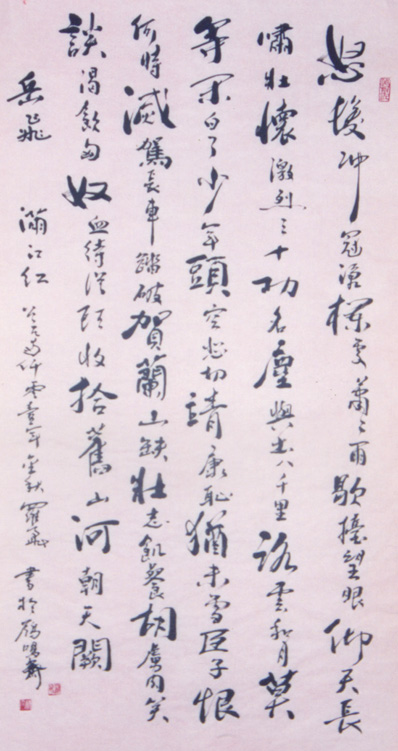 怒髮冲冠憑欄處蕭々雨歇擡望眼仰天長
嘯壯懷激烈三十功名塵與土八千里路雲和月莫
等閑白了少年頭空悲切靖康恥猶未雪臣子恨
何時滅駕長車踏破賀蘭山缺壯志飢餐胡虜肉笑
談渴飲匈奴血待從頭收拾舊山河朝天闕
岳飛 滿江紅 公元兩仟零壹年金秋 羅飛 書於鳴齋